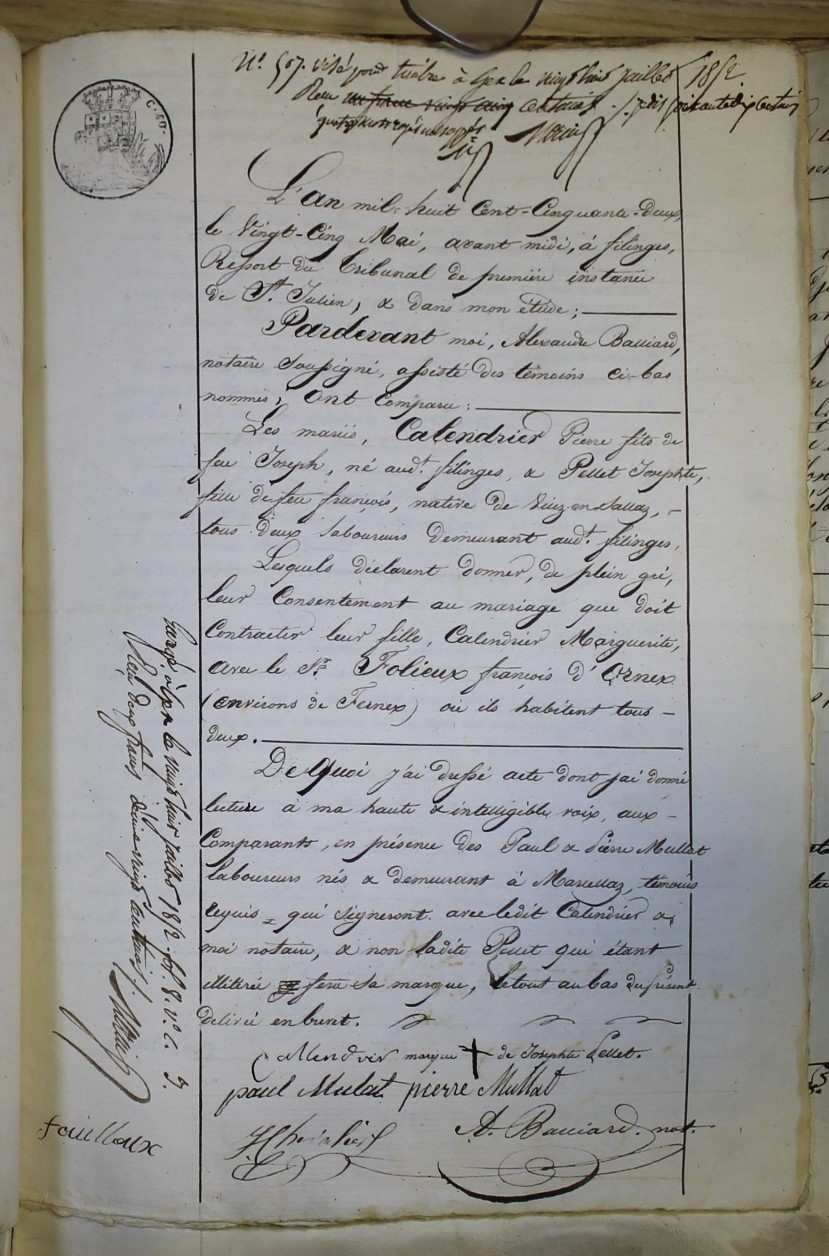 C. 60.
N.° 507. visé pour timbre à Gex le vingt huit juillet 1852
Reçu centimes
L'an mil-huit Cent-Cinquante-Deux,
le Vingt-Cinq Mai, avant midi, à filinges,
Ressort du Tribunal de première instance
de S.t Julien, & dans mon étude ;
Pardevant moi, Alexandre Bacciard,
notaire soussigné, assisté des témoins ci-bas
nommés, ont Comparu :
Les mariés, Calendrier Pierre fils de
feu Joseph, né aud.t filinges, & Pellet Josephte,
fille de feu françois, native de Viuz-en-Sallaz, -
tous deux laboureurs demeurant aud.t filinges,
Lesquels déclarent donner, de plein gré,
leur Consentement au mariage que doit
Contracter leur fille, Calendrier Marguerite,
avec le S.r Folieux françois d'Ornex
(environs de Fernex) où ils habitent tous -
deux.
De Quoi j'ai dressé acte dont j'ai donné
lecture à ma haute & intelligible voix, aux -
Comparants, en présence des Paul & Pierre Mullat
laboureurs nés & demeurant à Marcellaz, témoins
requis = qui signeront avec ledit Calendrier &
moi notaire, & non ladite Pellet qui étant
illitérée fera sa marque, le tout au bas du présent
délivré en brevt.
Callendrier marque + de Josephte Pellet.
paul Mulat pierre Mullat
A. Bacciard. not.
Enreg. à Gex le vingt huit juillet 1852 fol. 8. v.° c. 5
Reçu deux francs vingt centimes.
fouilloux